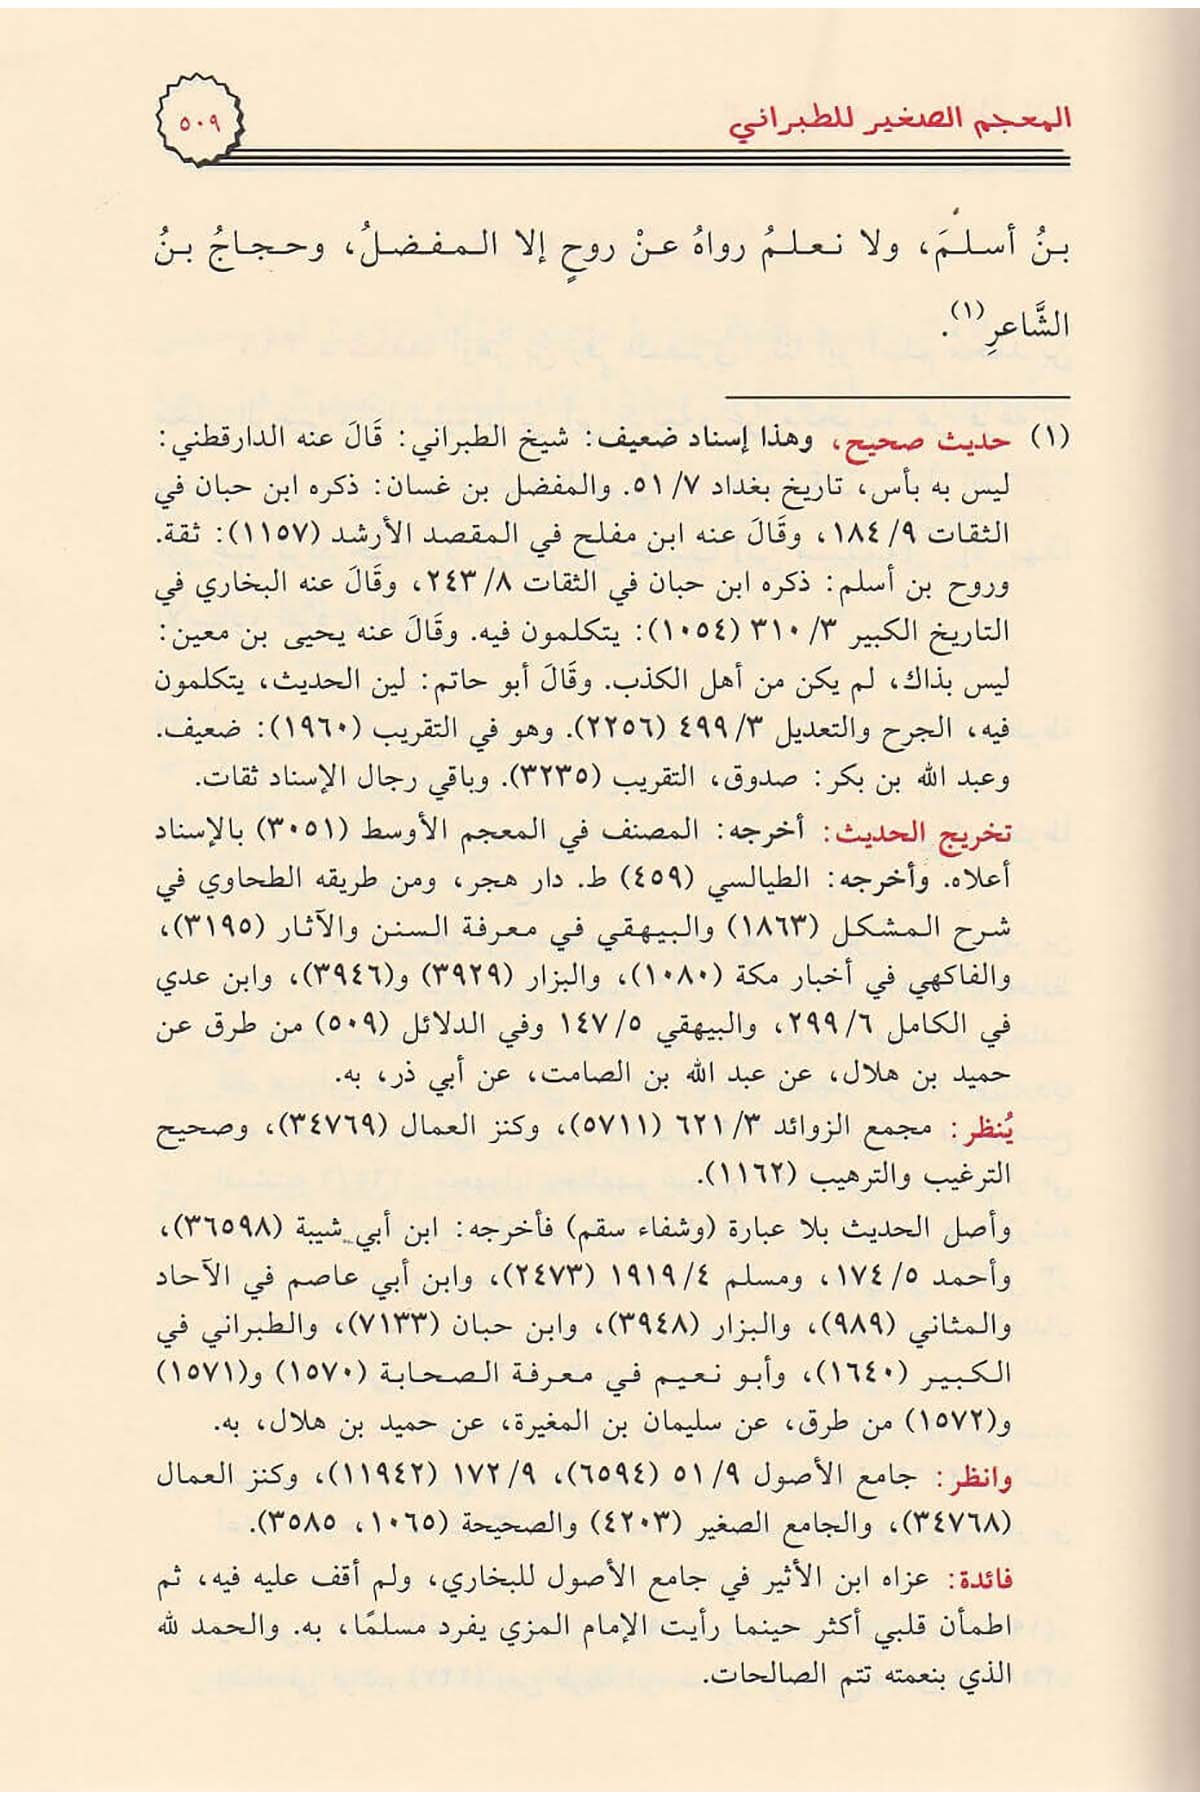 المعجم الصغير للطبراني
٥٠٩
بنُ أسلمَ، ولا نعلمُ رواهُ عنْ روحٍ إلا المفضلُ، وحجاجُ بنُ
الشَّاعرِ(١).
(١) حديث صحيح، وهذا إسناد ضعيف: شيخ الطبراني: قَالَ عنه الدارقطني:
ليس به بأس، تاريخ بغداد ٧/ ٥١. والمفضل بن غسان: ذكره ابن حبان في
الثقات ٩/ ١٨٤، وقَالَ عنه ابن مفلح في المقصد الأرشد (١١٥٧): ثقة.
وروح بن أسلم: ذكره ابن حبان في الثقات ٨/ ٢٤٣، وقَالَ عنه البخاري في
التاريخ الكبير ٣/ ٣١٠ (١٠٥٤): يتكلمون فيه. وقَالَ عنه يحيى بن معين:
ليس بذاك، لم يكن من أهل الكذب. وقَالَ أبو حاتم: لين الحديث، يتكلمون
فيه، الجرح والتعديل ٣/ ٤٩٩ (٢٢٥٦). وهو في التقريب (١٩٦٠): ضعيف.
وعبد الله بن بكر: صدوق، التقريب (٣٢٣٥). وباقي رجال الإسناد ثقات.
تخريج الحديث: أخرجه: المصنف في المعجم الأوسط (٣٠٥١) بالإسناد
أعلاه. وأخرجه: الطيالسي (٤٥٩) ط. دار هجر، ومن طريقه الطحاوي في
شرح المشكل (١٨٦٣) والبيهقي في معرفة السنن والآثار (٣١٩٥)،
والفاكهي في أخبار مكة (١٠٨٠)، والبزار (٣٩٢٩) و(٣٩٤٦)، وابن عدي
في الكامل ٦/ ٢٩٩، والبيهقي ٥/ ١٤٧ وفي الدلائل (٥٠٩) من طرق عن
حميد بن هلال، عن عبد الله بن الصامت، عن أبي ذر، به.
يُنظر: مجمع الزوائد ٣/ ٦٢١ (٥٧١١)، وكنز العمال (٣٤٧٦٩)، وصحيح
الترغيب والترهيب (١١٦٢).
وأصل الحديث بلا عبارة (وشفاء سقم) فأخرجه: ابن أبي شيبة (٣٦٥٩٨)،
وأحمد ٥/ ١٧٤، ومسلم ٤/ ١٩١٩ (٢٤٧٣)، وابن أبي عاصم في الآحاد
والمثاني (٩٨٩)، والبزار (٣٩٤٨)، وابن حبان (٧١٣٣)، والطبراني في
الكبير (١٦٤٠)، وأبو نعيم في معرفة الصحابة (١٥٧٠) و(١٥٧١)
و(١٥٧٢) من طرق، عن سليمان بن المغيرة، عن حميد بن هلال، به.
وانظر: جامع الأصول ٩/ ٥١ (٦٥٩٤)، ٩/ ١٧٢ (١١٩٤٢)، وكنز العمال
(٣٤٧٦٨)، والجامع الصغير (٤٢٠٣) والصحيحة (١٠٦٥، ٣٥٨٥).
فائدة: عزاه ابن الأثير في جامع الأصول للبخاري، ولم أقف عليه فيه، ثم
اطمأن قلبي أكثر حينما رأيت الإمام المزي يفرد مسلمًا، به. والحمد لله
الذي بنعمته تتم الصالحات.